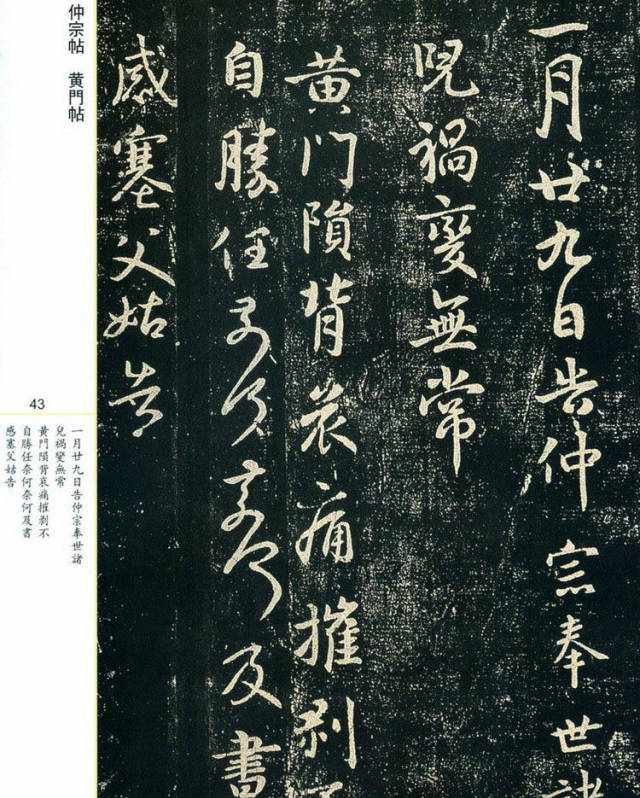 一月廿九日告仲宗奉世諸
兒禍變無常
黃門隕背哀痛摧剥不
自勝任奈何奈何及書
感塞父姑告
仲宗帖 黄門帖
43
一月廿九日告仲宗奉世諸
兒禍變無常
黃門隕背哀痛摧剥不
自勝任奈何奈何及書
感塞父姑告